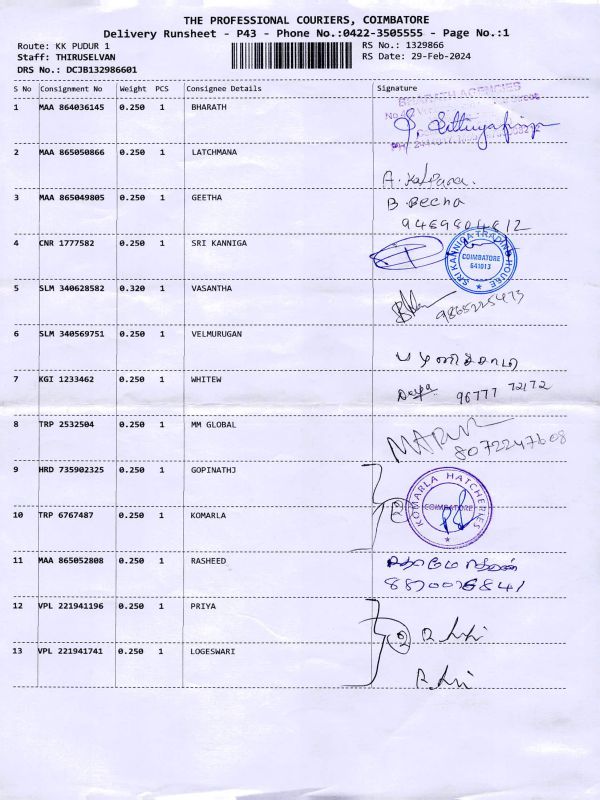 THE PROFESSIONAL COURIERS, COIMBATORE
Delivery Runsheet - P43 - Phone No.:0422-3505555 - Page No.:1
Route: KK PUDUR 1 RS No.: 1329866
Staff: THIRUSELVAN RS Date: 29-Feb-2024
DRS No.: DCJB132986601
S No Consignment No Weight PCS Consignee Details Signature
1 MAA 864036145 0.250 1 BHARATH
BHARATH AGENCIES
2 MAA 865050866 0.250 1 LATCHMANA
A. Kalpana.
3 MAA 865049805 0.250 1 GEETHA
B. Beena
9489804612
4 CNR 1777582 0.250 1 SRI KANNIGA
SRI KANNIGA TRADING HOUSE
COIMBATORE
641013
5 SLM 340628582 0.320 1 VASANTHA
9865225473
6 SLM 340569751 0.250 1 VELMURUGAN
7 KGI 1233462 0.250 1 WHITEW
96777 72172
8 TRP 2532504 0.250 1 MM GLOBAL
8072247608
9 HRD 735902325 0.250 1 GOPINATHJ
10 TRP 6767487 0.250 1 KOMARLA
2
KOMARLA HATCHERIES
COIMBATORE
11 MAA 865052808 0.250 1 RASHEED
12 VPL 221941196 0.250 1 PRIYA
2
13 VPL 221941741 0.250 1 LOGESWARI